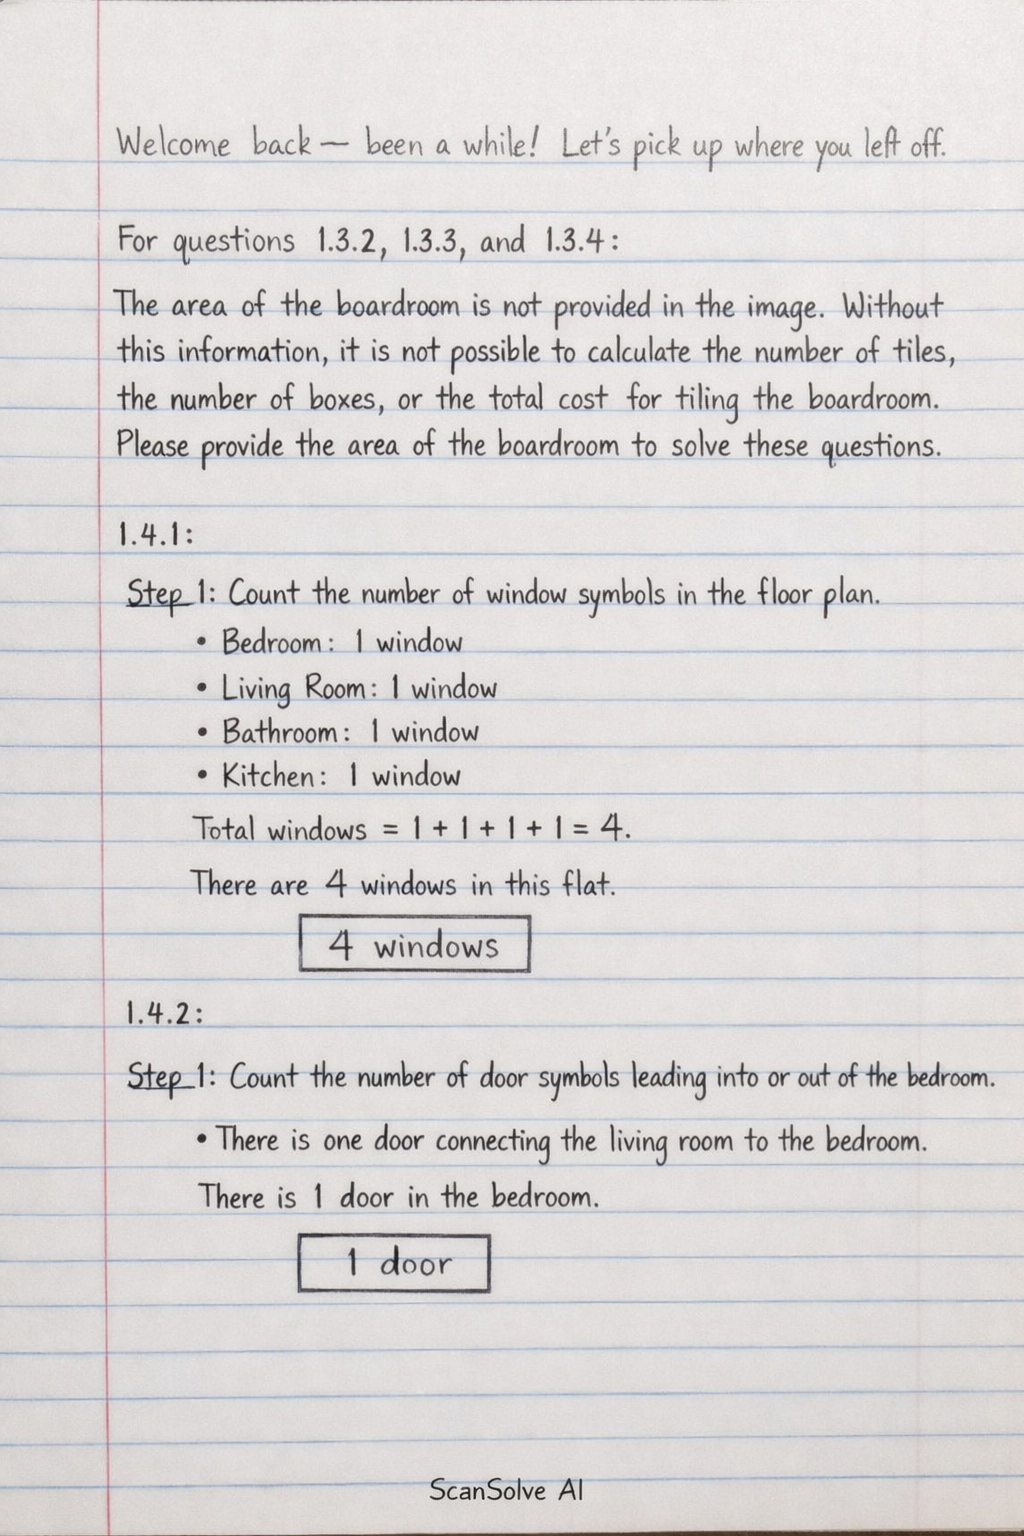 Welcome back — been a while! Let's pick up where you left off.
For questions 1.3.2, 1.3.3, and 1.3.4:
The area of the boardroom is not provided in the image. Without
this information, it is not possible to calculate the number of tiles,
the number of boxes, or the total cost for tiling the boardroom.
Please provide the area of the boardroom to solve these questions.
1.4.1:
Step 1: Count the number of window symbols in the floor plan.
• Bedroom: 1 window
• Living Room: 1 window
• Bathroom: 1 window
• Kitchen: 1 window
Total windows = 1 + 1 + 1 + 1 = 4.
There are 4 windows in this flat.
4 windows
1.4.2:
Step 1: Count the number of door symbols leading into or out of the bedroom.
• There is one door connecting the living room to the bedroom.
There is 1 door in the bedroom.
1 door
ScanSolve AI